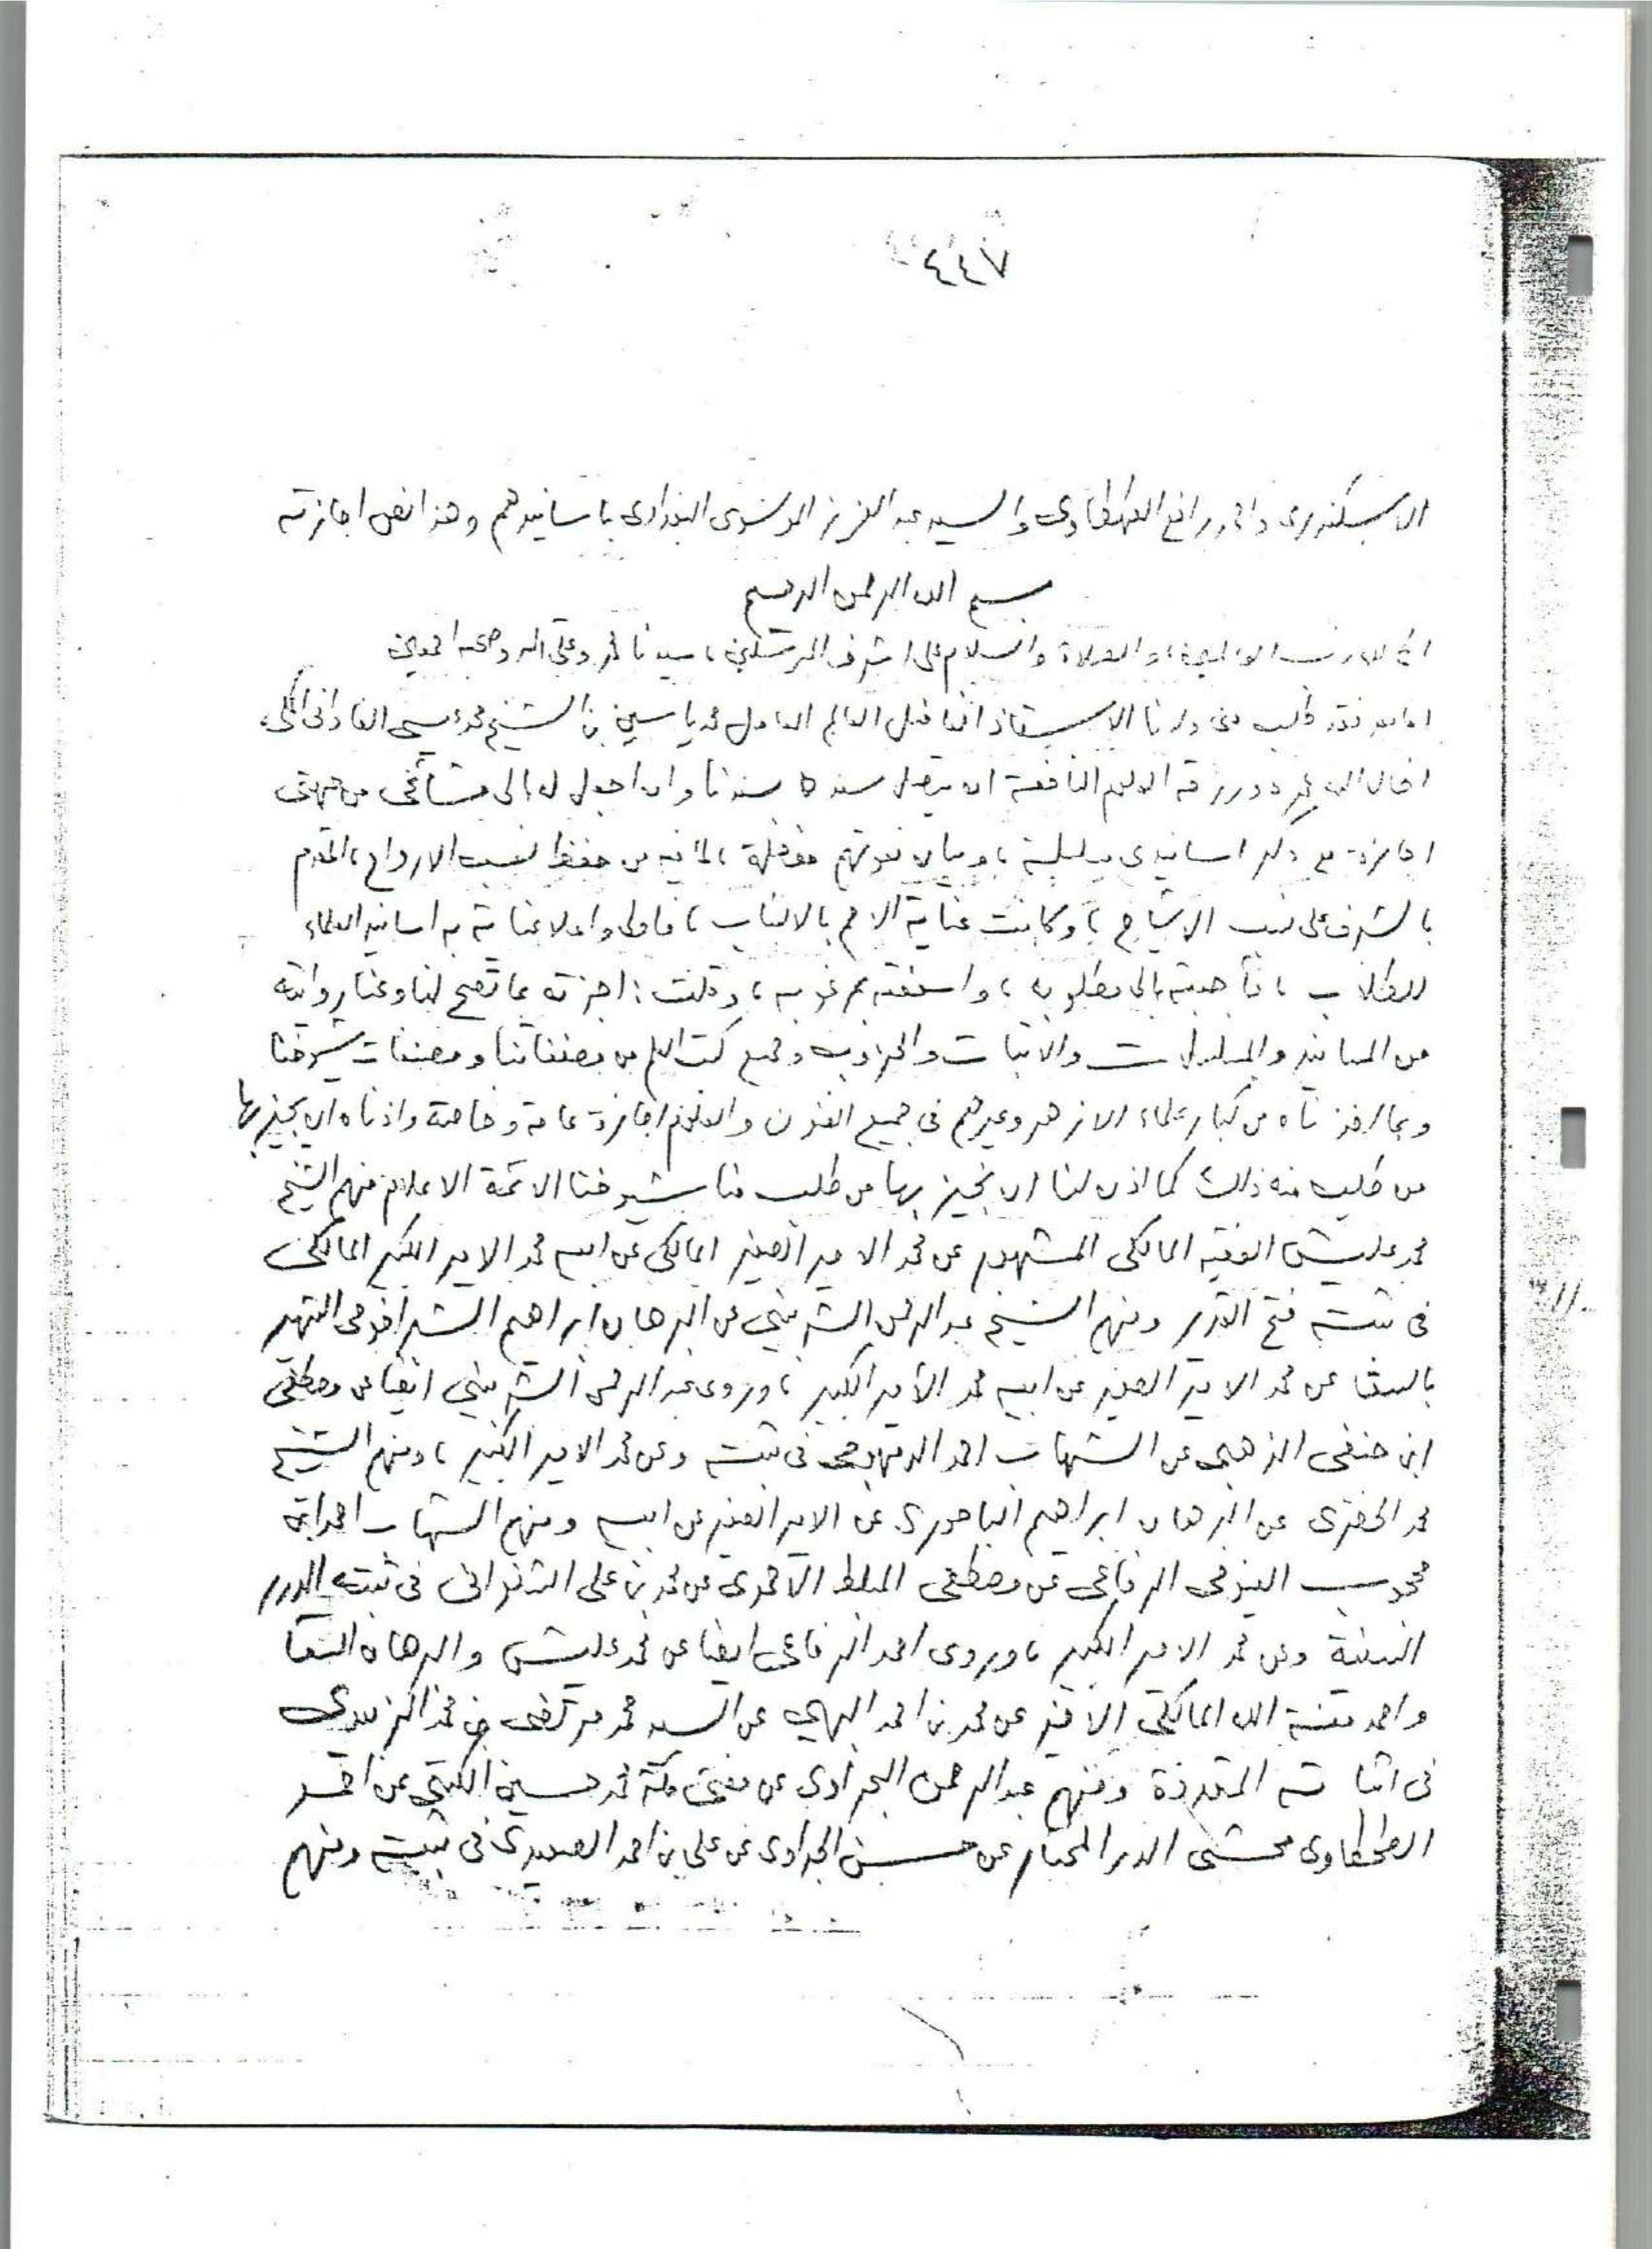 ٤٤٧
الاسكندرى واحمد رافع الطهطاوى والسيد عبد العزيز البغدادى باسانيدهم وهذا نص اجازته
بسم الله الرحمن الرحيم
الحمد لله رب العالمين، والصلاة والسلام على اشرف المرسلين، سيدنا محمد وعلى اله وصحبه اجمعين
اما بعد فقد طلب منى ولدنا الاستاذ الفاضل العالم العامل محمد ياسين بن الشيخ محمد عيسى الفادانى المكى،
اطال الله عمره ورزقه العلوم النافعة ان يتصل سنده بسندنا وان اجعل له الى مشائخى من جهتى
اجازة مع ذكر اسانيدى مفصلة، لما فيه من حفظ نسب الارواح، المقدم
بالشرف على نسب الاشباح، وكانت عناية الامم بالانساب، فاولى واعلا عناية به اسانيد العلماء
للطلاب، فأجبته الى مطلوبه، واسعفته بمرغوبه، وقلت: اجزته بما تصح لنا وعنا روايته
من المسانيد والمسلسلات والاثبات و وجميع كتب العلم من مصنفاتنا ومصنفات شيوخنا
وبما اخذناه من كبار علماء الازهر وغيرهم فى جميع الفنون والعلوم اجازة عامة وخاصة واذناه ان يجيز بها
من طلب منه ذلك كما اذن لنا ان نجيز بها من طلب منا شيوخنا الائمة الاعلام منهم الشيخ
محمد عليش الفقيه المالكى المشهور عن محمد الامير الصغير المالكى عن ابيه محمد الامير الكبير المالكى
فى ثبته ومنهم الشيخ عبد الرحمن الشربينى عن البرهان ابراهيم الشهير
بالسقا عن محمد الامير الصغير عن ابيه محمد الأمير الكبير، وروى عبد الرحمن الشربينى ايضا عن مصطفى
ابن حنفى الذهبى عن الشهاب احمد الدمهوجى فى ثبته وعن محمد الامير الكبير، ومنهم الشيخ
محمد الخضرى عن البرهان ابراهيم الباجورى عن الامير الصغير عن ابيه ومنهم الشهاب احمد ابن
محجوب الفيومى الرفاعى عن مصطفى المبلط الأحمدى عن محمد بن على الشنوانى فى ثبته الدرر
السنية وعن محمد الامير الكبير، وروى احمد الرفاعى ايضا عن محمد عليش والبرهان السقا
واحمد منة الله المالكى الاخير عن محمد بن احمد البهي عن السيد محمد مرتضى بن محمد الزبيدى
فى اثباته المتعددة ومنهم عبد الرحمن البحراوى عن مفتى مكة محمد حسين الكتبى عن احمد
الطحطاوى محشى الدر المختار عن حسن الجداوى عن على بن احمد الصعيدى فى ثبته ومنهم